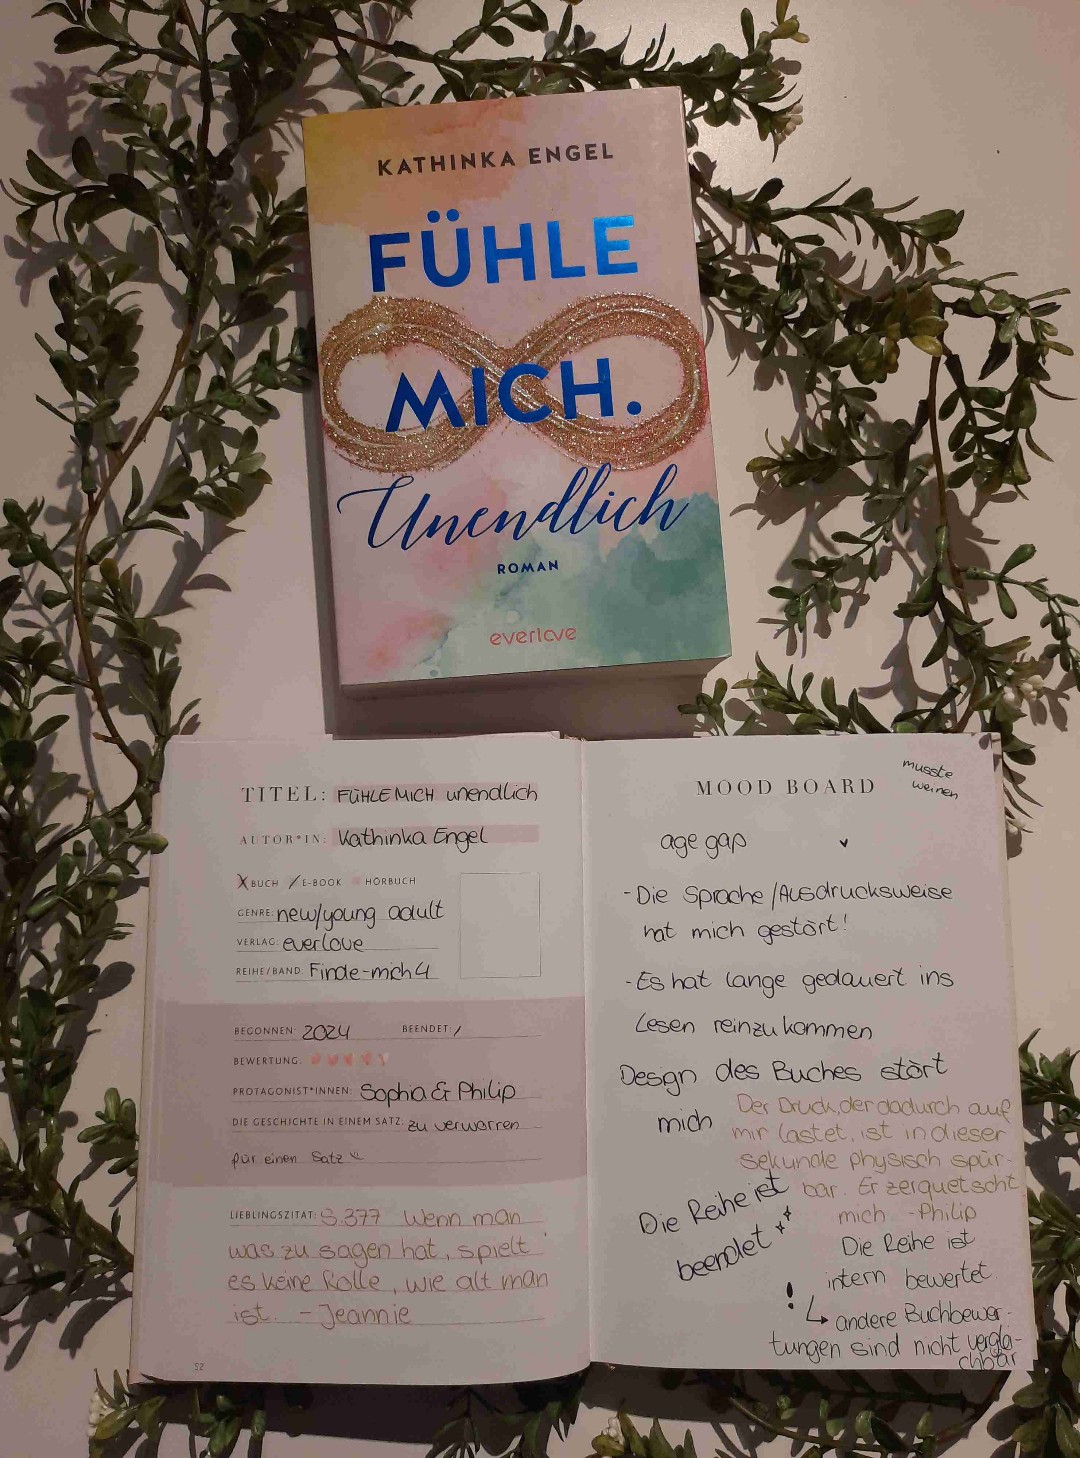 KATHINKA ENGEL
FÜHLE
MICH.
Unendlich
ROMAN
everlove
TITEL: FÜHLE MICH unendlich
AUTOR*IN: Kathinka Engel
BUCH E-BOOK HÖRBUCH
GENRE: new/young adult
VERLAG: everlove
REIHE/BAND: Finde-mich 4
BEGONNEN: 2024 BEENDET: /
BEWERTUNG:
PROTAGONIST*INNEN: Sophia & Philip
DIE GESCHICHTE IN EINEM SATZ: zu verworren
für einen Satz
LIEBLINGSZITAT: S.377 Wenn man
was zu sagen hat, spielt
es keine Rolle, wie alt man
ist. - Jeannie
52
MOOD BOARD
musste
weinen
age gap
- Die Sprache/Ausdrucksweise
hat mich gestört!
- Es hat lange gedauert ins
Lesen reinzukommen
Design des Buches stört
mich
Der Druck, der dadurch auf
mir lastet, ist in dieser
sekunde physisch spür-
bar. Er zerquetscht
mich -Philip
Die Reihe ist
beendet
Die Reihe ist
intern bewertet
! ↳ andere Buchbewer-
tungen sind nicht vergla-
chbar